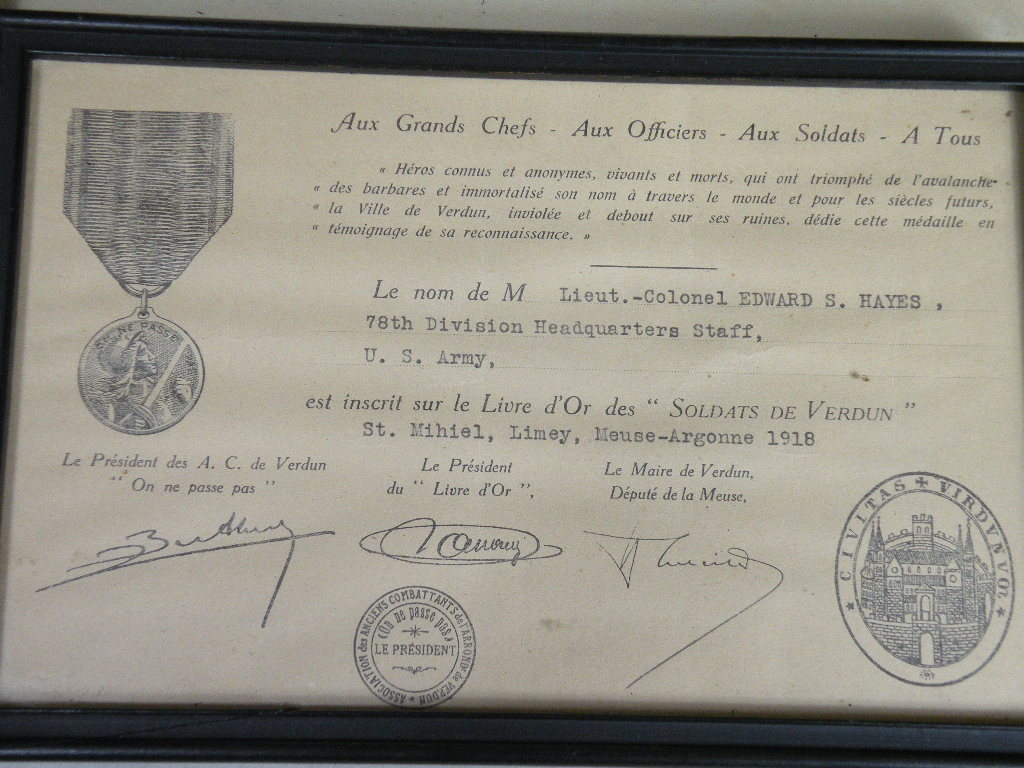 Aux Grands Chefs - Aux Officiers - Aux Soldats - A Tous
« Héros connus et anonymes, vivants et morts, qui ont triomphé de l'avalanche
« des barbares et immortalisé son nom à travers le monde et pour les siècles futurs,
« la Ville de Verdun, inviolée et debout sur ses ruines, dédie cette médaille en
« témoignage de sa reconnaissance. »
ON NE PASSE PAS
Le nom de M Lieut.-Colonel EDWARD S. HAYES ,
78th Division Headquarters Staff,
U. S. Army,
est inscrit sur le Livre d'Or des “ SOLDATS DE VERDUN ”
St. Mihiel, Limey, Meuse-Argonne 1918
Le Président des A. C. de Verdun
“ On ne passe pas ”
Le Président
du “ Livre d'Or ”,
Le Maire de Verdun,
Député de la Meuse,
ASSOCIATION des ANCIENS COMBATTANTS de l'ARROND^t de VERDUN
(On ne passe pas)
LE PRÉSIDENT
CIVITAS VIRDVNVOR